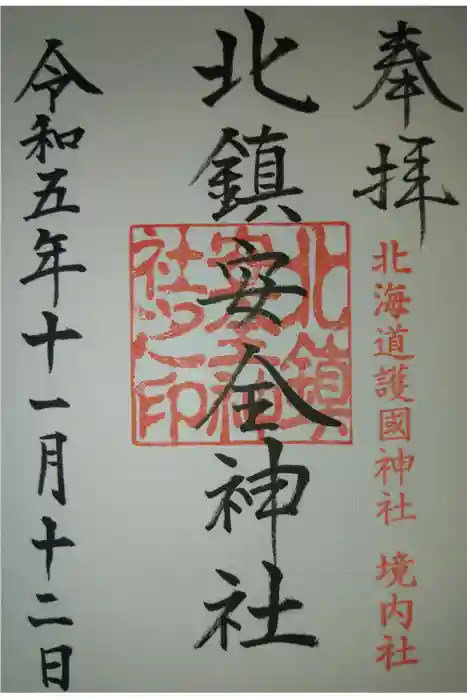 奉拝
北海道護國神社 境内社
北鎮安全神社
北鎮
安全神
社之印
令和五年十一月十二日